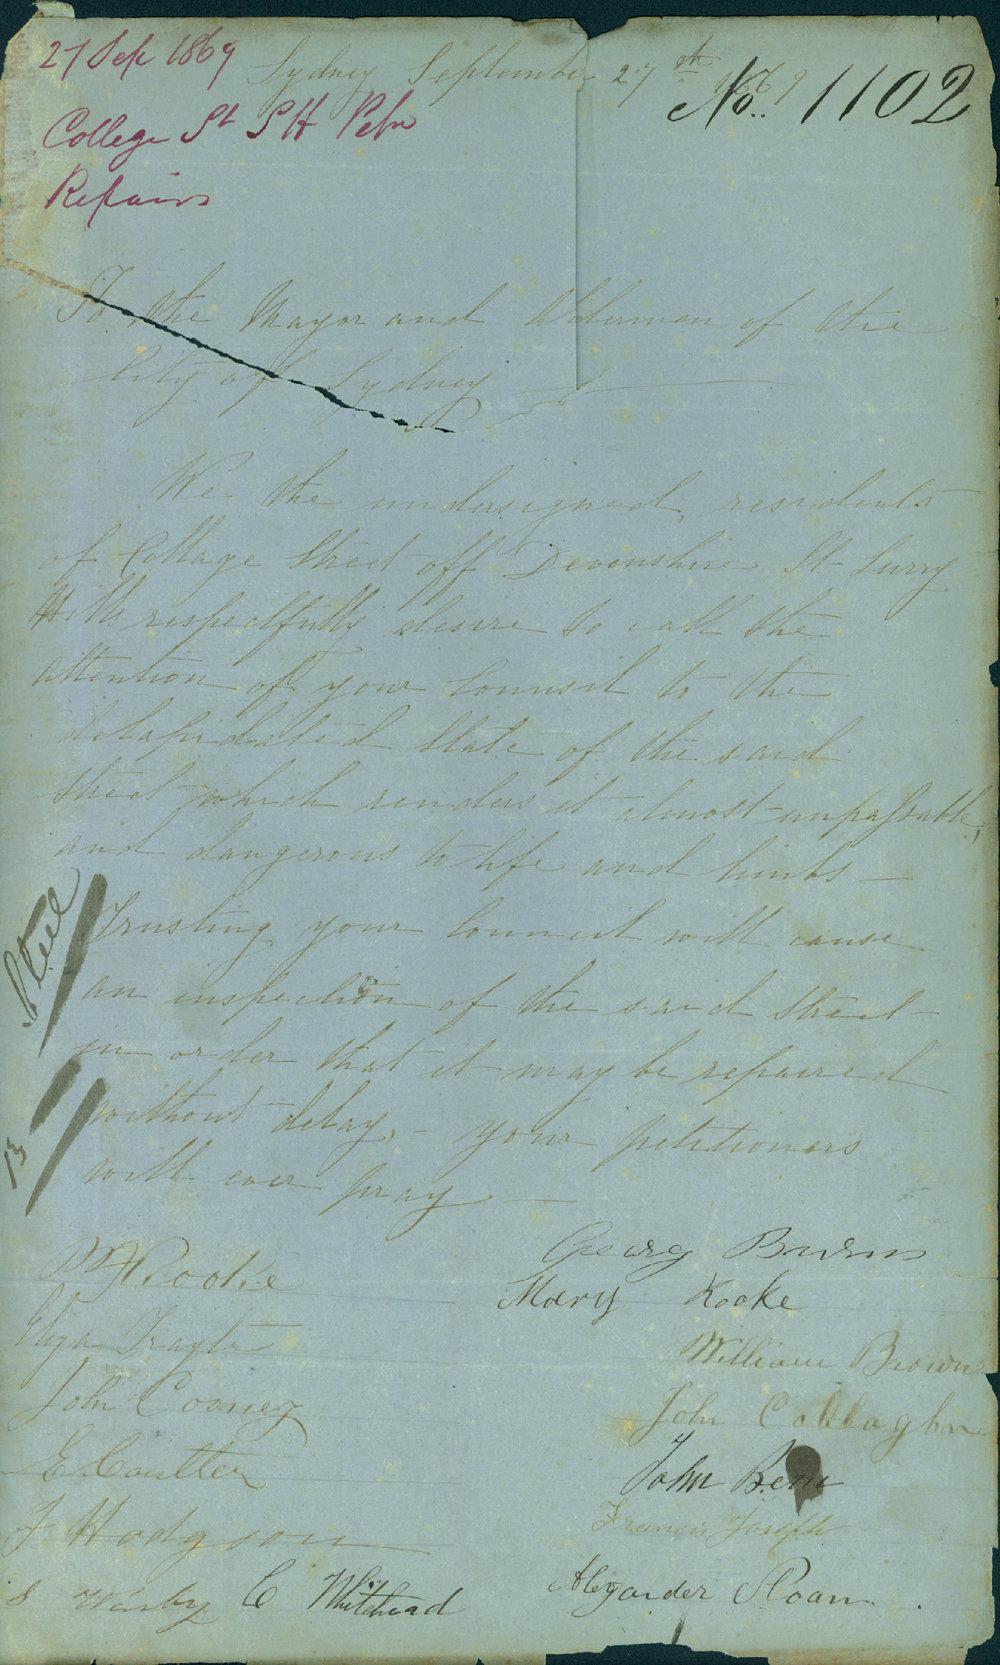 27 Sep 1869
Sydney September 27th 1869
No. 1102
College St S H Petn
Repairs
To the Mayor and Aldermen of the
City of Sydney
We the undersigned, residents
of Cottage Street off Devonshire St Surry
Hills respectfully desire to call the
attention of your Council to the
delapidated State of the said
Street which renders it almost unpassable,
and dangerous to life and limbs —
Trusting your Council will cause
an inspection of the said Street
in order that it may be repaired
without delay, — your petitioners
will ever pray —
13
Georg Burns
Mary Kooke
Eliza
William Brown
John Cooney
John Callaghn
E. Coulter
John
Francis Joseph
J Hodgson
Alexander Sloan
S Warby C Whithead